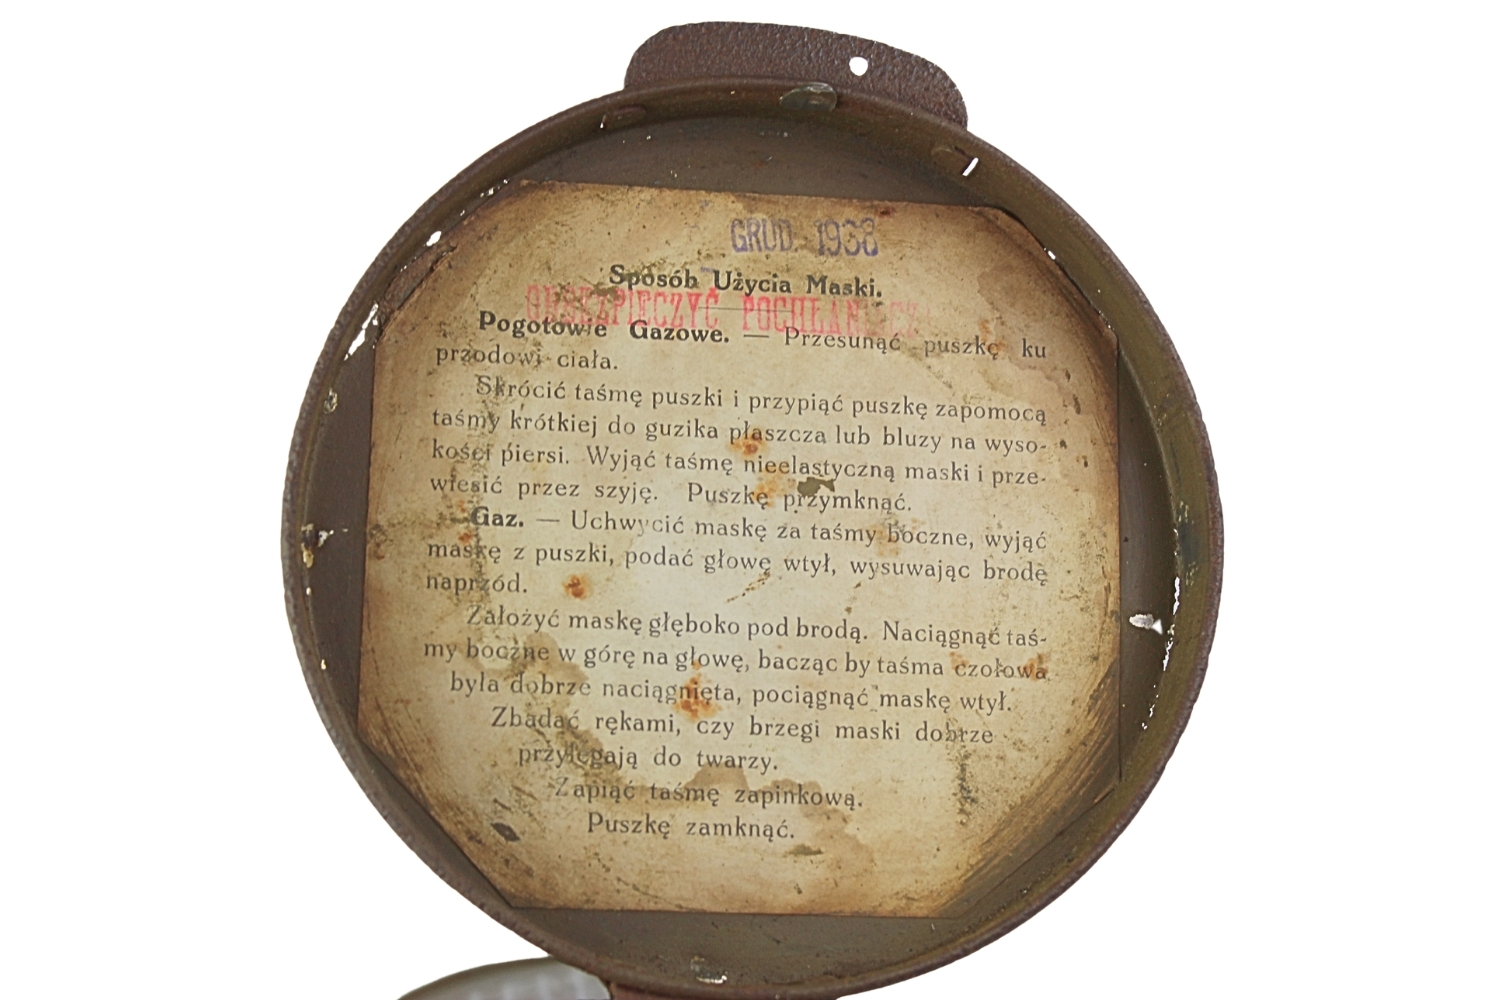 GRUD. 1938
Sposób Użycia Maski.
POCHŁANIACZ
Pogotowie Gazowe. — Przesunąć puszkę ku
przodowi ciała.
Skrócić taśmę puszki i przypiąć puszkę zapomocą
taśmy krótkiej do guzika płaszcza lub bluzy na wyso-
kości piersi. Wyjąć taśmę nieelastyczną maski i prze-
wiesić przez szyję. Puszkę przymknąć.
Gaz. — Uchwycić maskę za taśmy boczne, wyjąć
maskę z puszki, podać głowę wtył, wysuwając brodę
naprzód.
Założyć maskę głęboko pod brodą. Naciągnąć taś-
my boczne w górę na głowę, bacząc by taśma czołowa
była dobrze naciągnięta, pociągnąć maskę wtył.
Zbadać rękami, czy brzegi maski dobrze
przylegają do twarzy.
Zapiąć taśmę zapinkową.
Puszkę zamknąć.